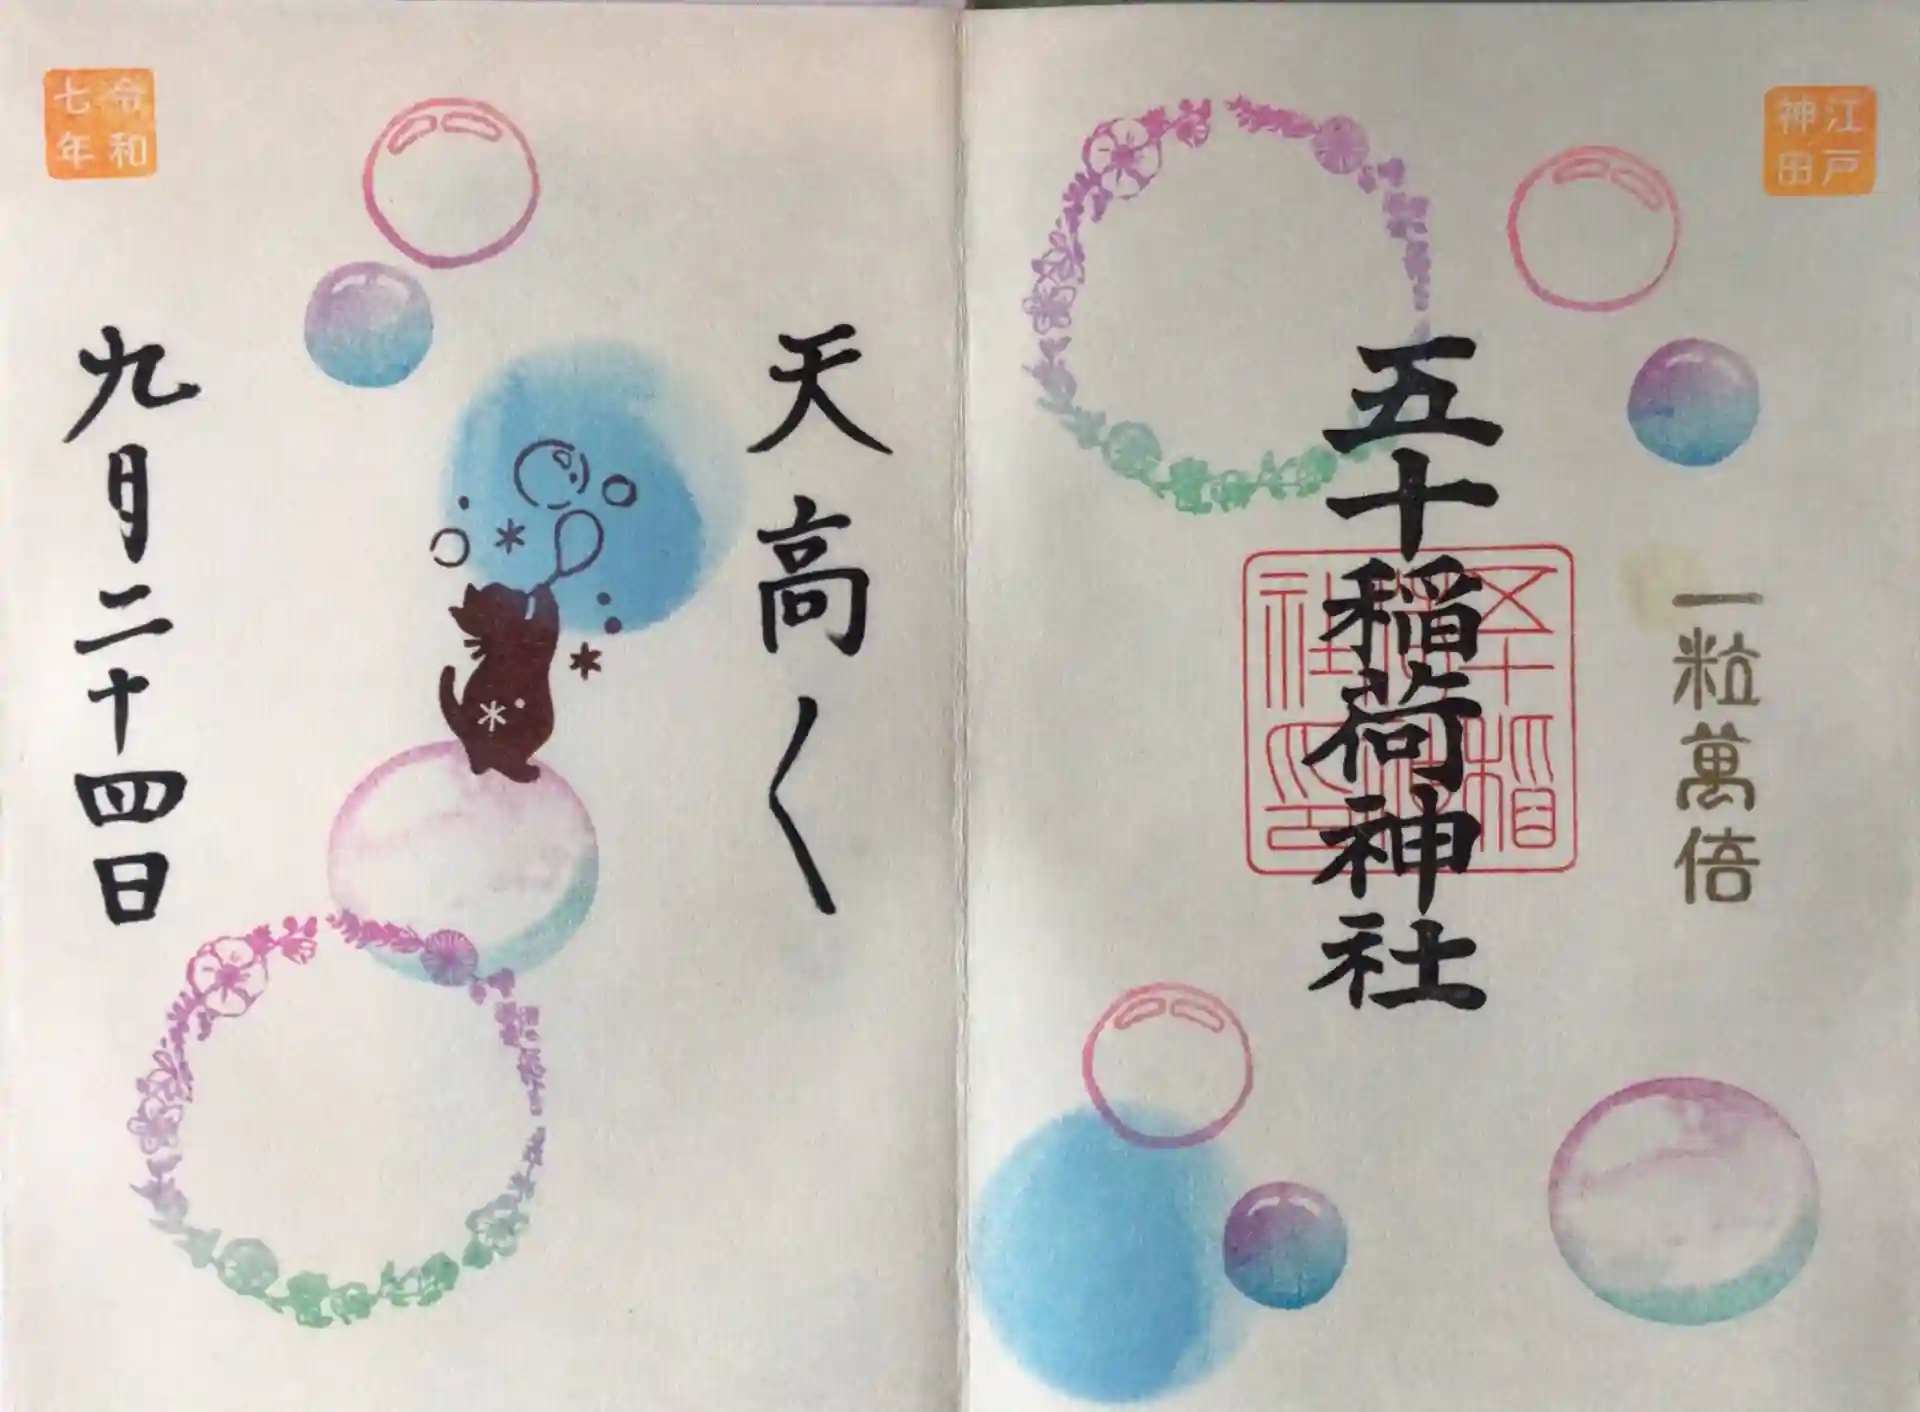 江戸
神田
一粒萬倍
五十稲荷神社
天高く
九月二十四日
令和
七年